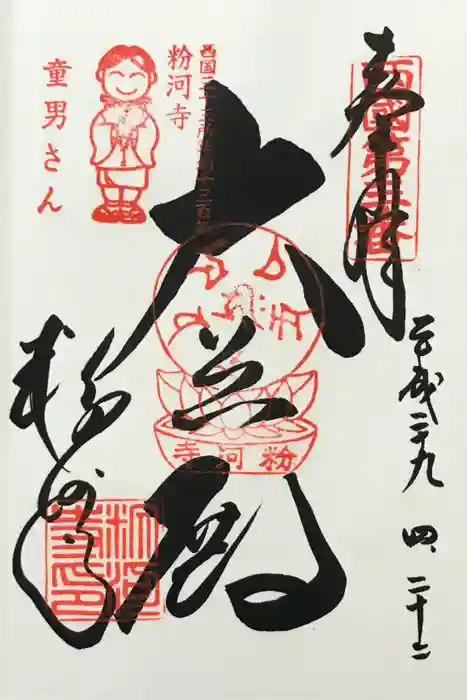 奉拝
西國第三番
平成二十九 四、二十二
西国三十三所草創千三百年
粉河寺
童男さん
大悲殿
粉河寺
粉河寺
粉河寺印